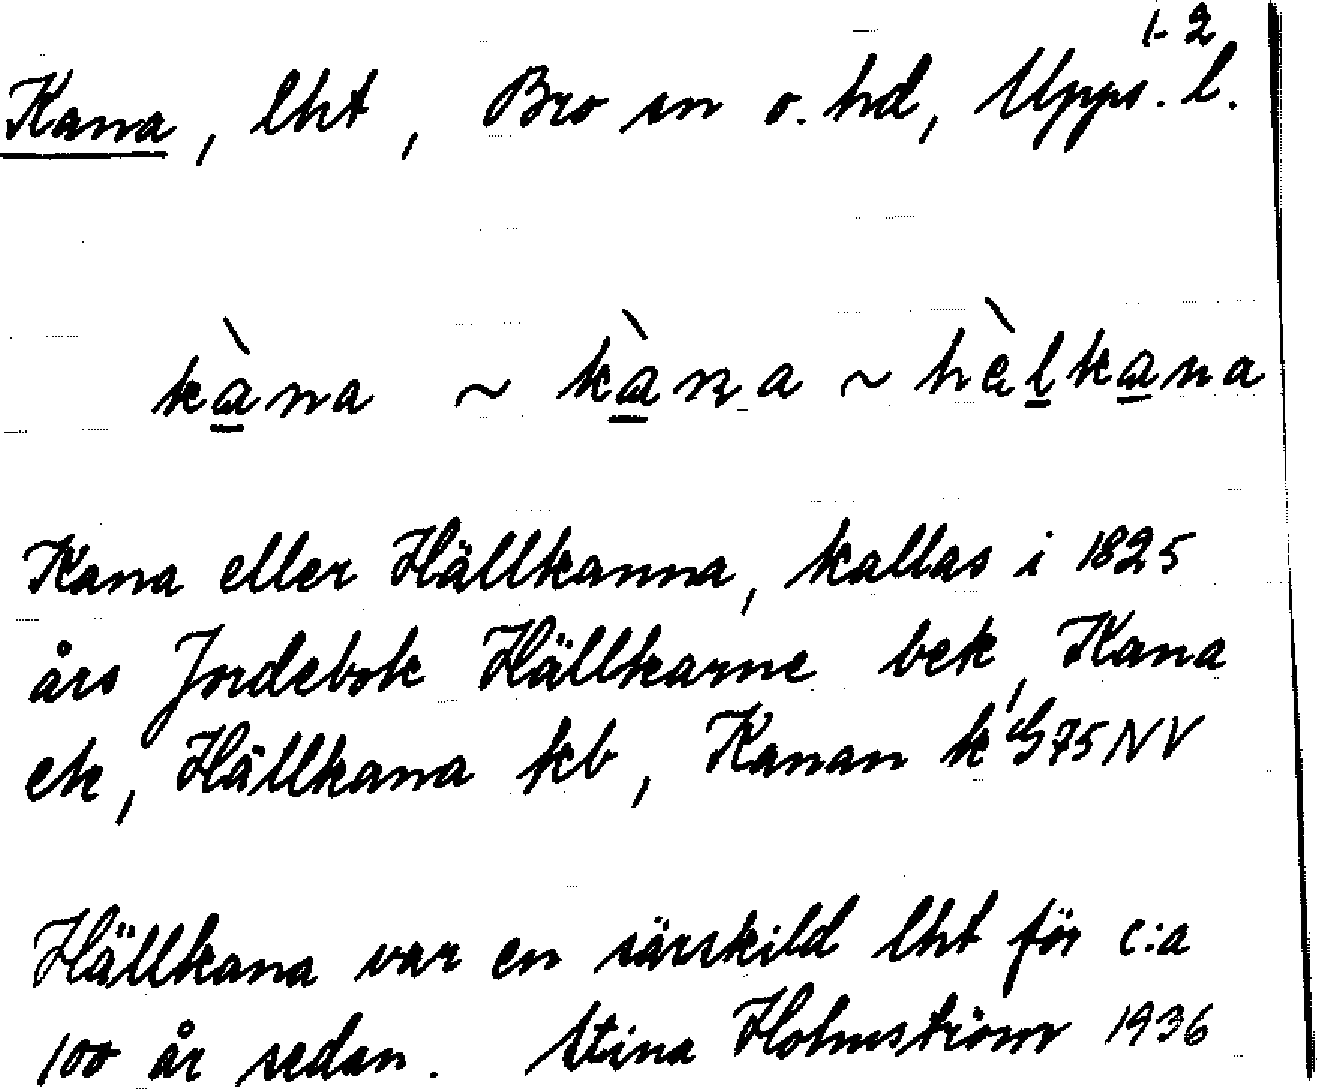 1-2
Kana, lht, Bro sn o. hd, Upps. l.
kàna ~ kàna ~ hèlkana
Kana eller Hällkanna, kallas i 1825
års Jordebok Hällkarne bek, Kana
ek, Hällkana kb, Kanan k' G75NV
Hällkana var en särskild lht för c:a
100 år sedan. Stina Holmström 1936